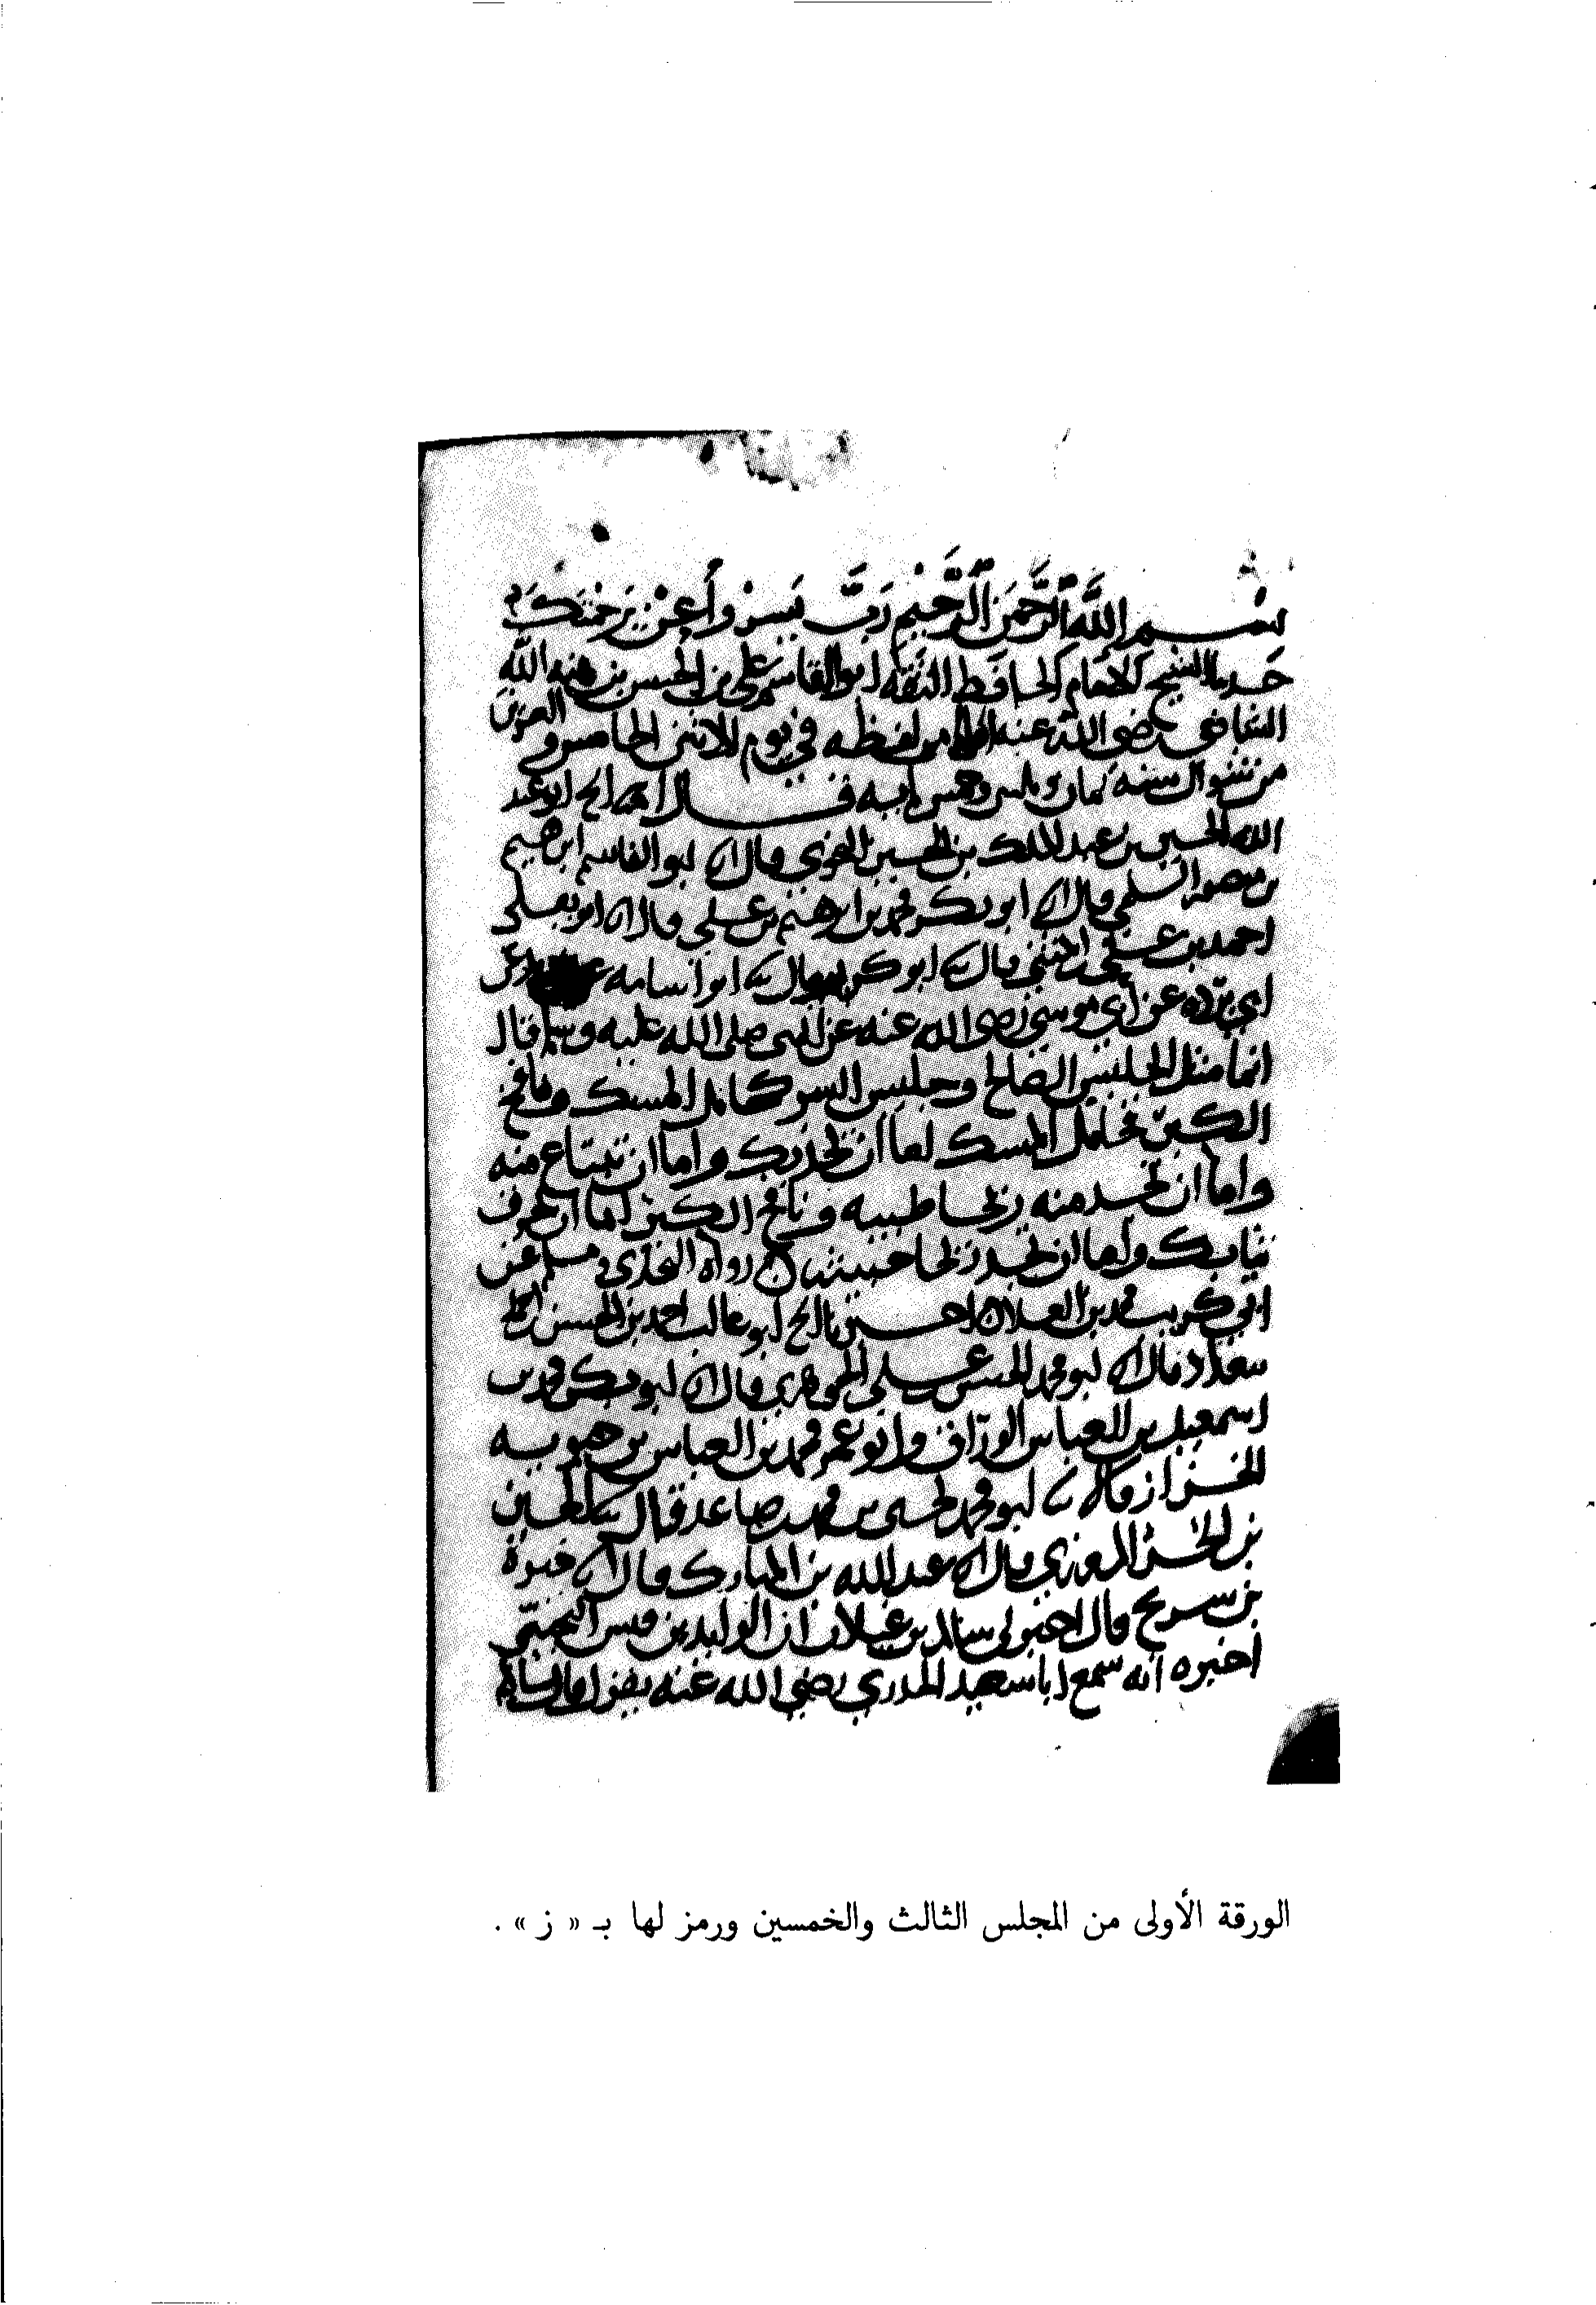 بسم اللَّه الرَّحمَن الرَّحيم رَبّ يَسر وأَعِن برَحْمَتكَ
حدثنا الشيخ الامام الحافظ الثقة ابو القاسم علي بن الحسن بن هبه الله
الشافعي رضي الله عنه املا من لفظه في يوم الاثنين الخامس و العشرين
من شوال سنه ثمان وثلثين وخمس مايه قال الشيخ ابو عبد
الله الحسين بن عبد الملك بن الحسين قال ابو القاسم ابرهيم
بن منصور السلمي قال ابو بكر محمد بن ابرهيم بن علي قال ابو يعلى
احمد بن علي بن المثنى قال ابو كريب قال ابو اسامه عن
ابي برده عن ابي موسى رضي الله عنه عن النبي صلى الله عليه وسلم قال
انما مثل الجليس الصالح وجليس السو كحامل المسك ونافخ
الكير فحامل المسك اما ان يحذيك واما ان تبتاع منه
واما ان تجد منه ريحا طيبه ونافخ الكير اما ان يحرق
ثيابك واما ان تجد ريحا خبيثه رواه البخاري و مسلم عن
ابي كريب محمد بن العلا اخبرنا الشيخ ابو غالب احمد بن الحسن
ببغداد قال ابو محمد الحسن بن علي الجوهري قال ابو بكر محمد بن
اسمعيل بن العباس الوراق وابو عمر محمد بن العباس بن حيويه
الخزاز قالا ابو محمد يحيى بن محمد بن صاعد قال الحسين
بن الحسن المروزي قال عبد الله بن المبارك قال حيوة
بن شريح قال اخبرني سالم بن غيلان ان الوليد بن قيس التجيبي
اخبره انه سمع ابا سعيد الخدري رضي الله عنه يقول
الورقة الأولى من المجلس الثالث والخمسين ورمز لها بـ « ز » .